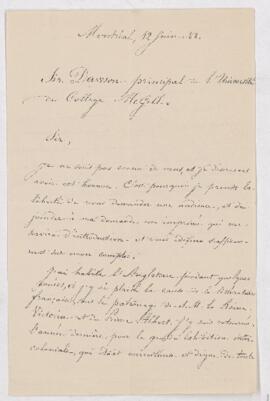 Montréal, 12 Juin 88.
Sir Dawson principal de l'Université
du Collège McGill.
Sir,
Je ne suis pas connu de vous, et je désirerais
avoir cet honneur. C'est pourquoi je prends la
liberté de vous demander une audience, et de
joindre à ma demande un imprimé qui me
servira d'introduction et vous
sur mon compte.
J'ai habité l'Angleterre pendant quelques
années, et j'y ai plaidé la cause de la littérature
française, sous le patronage de S. M. la Reine
Victoria et du Prince Albert. J'y suis retourné
l'année dernière, pour la grande Exposition inter-
coloniale, qui était merveilleuse et digne de toute